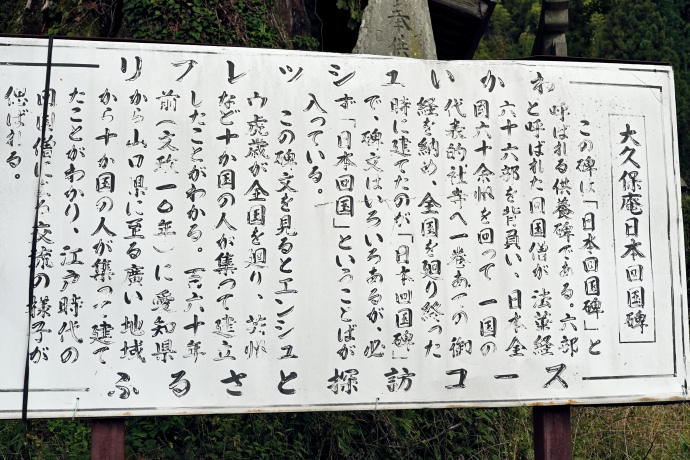 リフレッシュいかわ
大久保庵日本回国碑
この碑は「日本回国碑」と
呼ばれる供養碑である。六部
と呼ばれた回国僧が、法華経
六十六部を背負い、日本全
国六十余州を回って一国の
代表的社寺へ一巻あての御
経を納め、全国を廻り終った
時に建てたのが「日本回国碑」
で、碑文はいろいろあるが、必
ず「日本回国」ということばが
入っている。
この碑文を見るとエンシュ
ウ虎蔵が全国を廻り、芸州
など十か国の人が集って建立
したことがわかる。百六十年
前(文政一〇年)に愛知県
から山口県に至る廣い地域
から十か国の人が集って建て
たことがわかり、江戸時代の
回国僧による交流の様子が
偲ばれる。
ふるさと探訪コース